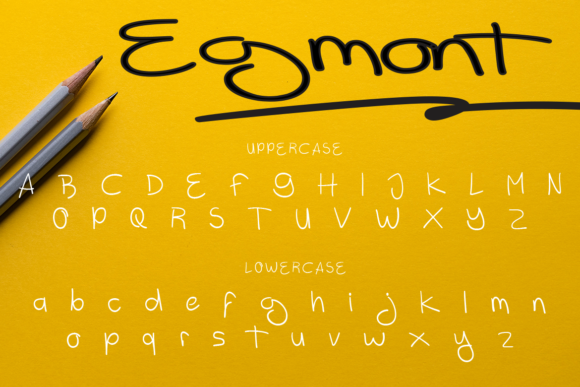 Egmont
UPPERCASE
A B C D E F G H I J K L M N
O P Q R S T U V W X Y Z
LOWERCASE
a b c d e f g h i j k l m n
o p q r s t u v w x y z